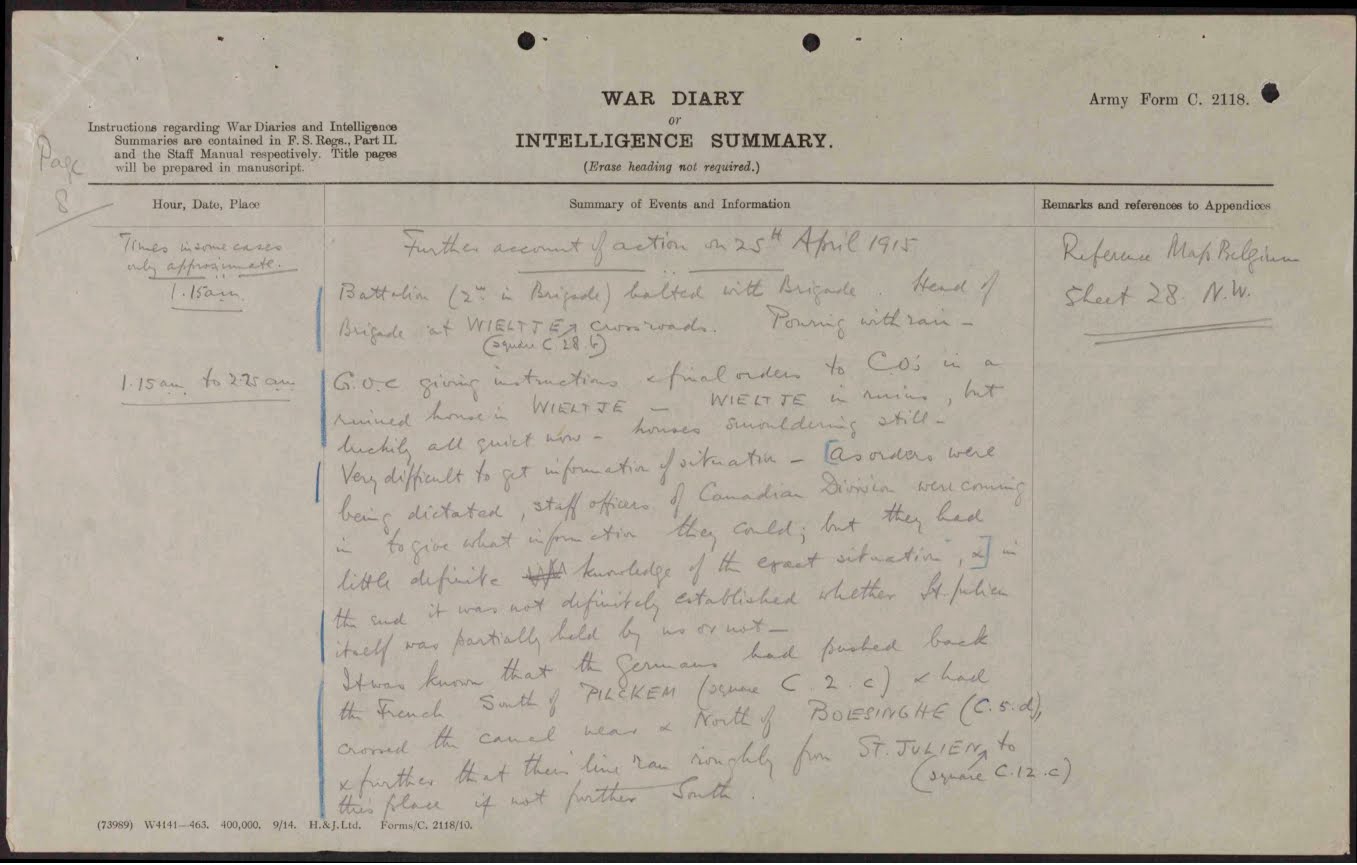 WAR DIARY
or
INTELLIGENCE SUMMARY.
(Erase heading not required.)
Army Form C. 2118.
Instructions regarding War Diaries and Intelligence
Summaries are contained in F. S. Regs., Part II.
and the Staff Manual respectively. Title pages
will be prepared in manuscript.
Page
8
Hour, Date, Place
Summary of Events and Information
Remarks and references to Appendices
Times in some cases
only approximate.
Further account of action on 25th April 1915
Reference Map Belgium
Sheet 28. N.W.
1.15am.
Battalion (2nd in Brigade) halted with Brigade. Head of
Brigade at WIELTJE crossroads. Pouring with rain -
(square C 28.b)
1.15am to 2.25am
G.O.C giving instructions & final orders to CO's in a
ruined house in WIELTJE - WIELTJE in ruins, but
luckily all quiet now - houses smouldering still -
Very difficult to get information of situation - [as orders were
being dictated, staff officers of Canadian Division were coming
in to give what information they could; but they had
little definite knowledge of the exact situation, &] in
the end it was not definitely established whether St. Julien
itself was partially held by us or not -
It was known that the Germans had pushed back
the French South of PILCKEM (square C. 2. c) & had
crossed the canal near & North of BOESINGHE (C.5.d),
& further that their line ran roughly from ST. JULIEN to
(square C.12.c)
this place if not further South.
(73989) W4141—463. 400,000. 9/14. H.&J.Ltd. Forms/C. 2118/10.